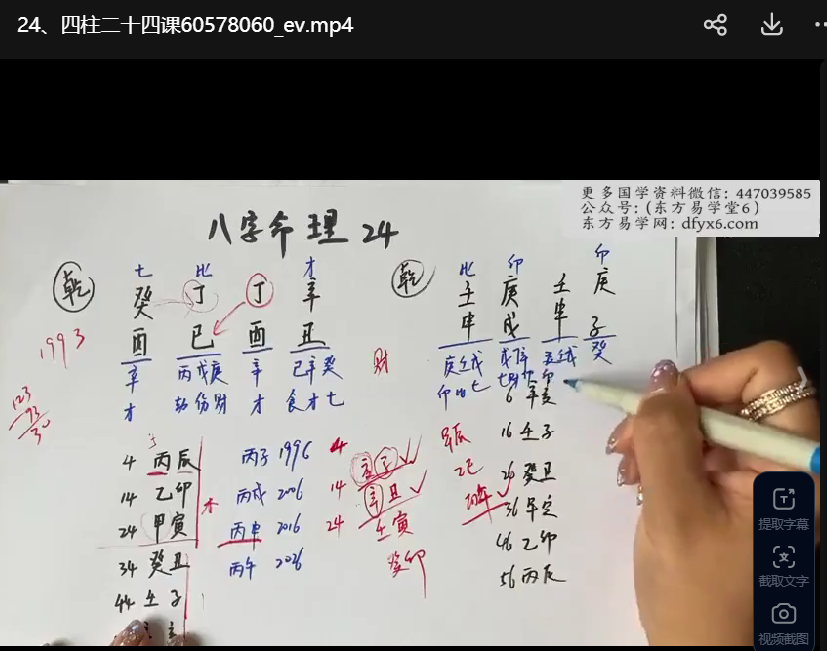 24、四柱二十四课60578060_ev.mp4
更多国学资料微信：447039585
公众号：(东方易学堂6)
东方易学网：dfyx6.com
八字命理 24
乾
七 比 才
癸 丁 丁 辛
酉 巳 酉 丑
辛 丙戊庚 辛 己辛癸
才 劫伤财 才 食才七
1993
123
93
30
财
4 丙辰
14 乙卯
24 甲寅
34 癸丑
44 壬子
木
丙子 1996
丙戌 2006
丙申 2016
丙午 2026
4
14 辛丑
24 壬寅
癸卯
乾
比 卯 卯
壬 庚 壬 庚
申 戌 申 子
庚壬戊
癸
6 辛亥
16 壬子
26 癸丑
36
46 乙卯
56 丙辰
提取字幕
截取文字
视频截图